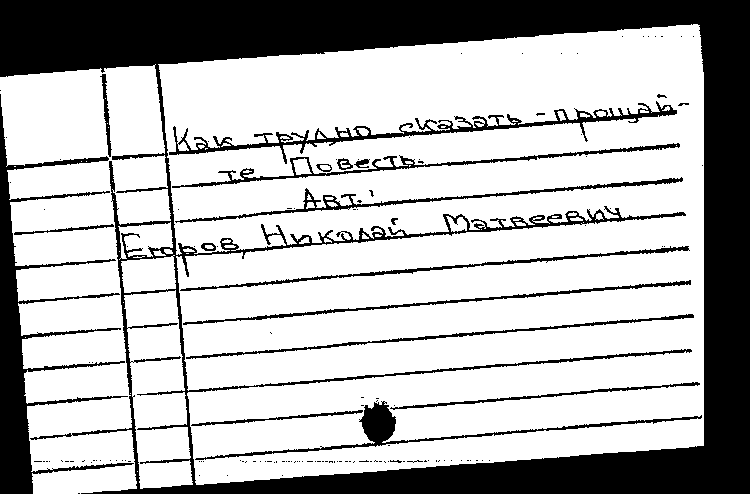 Как трудно сказать - прощай-
те. Повесть.
Авт.:
Егоров, Николай Матвеевич.